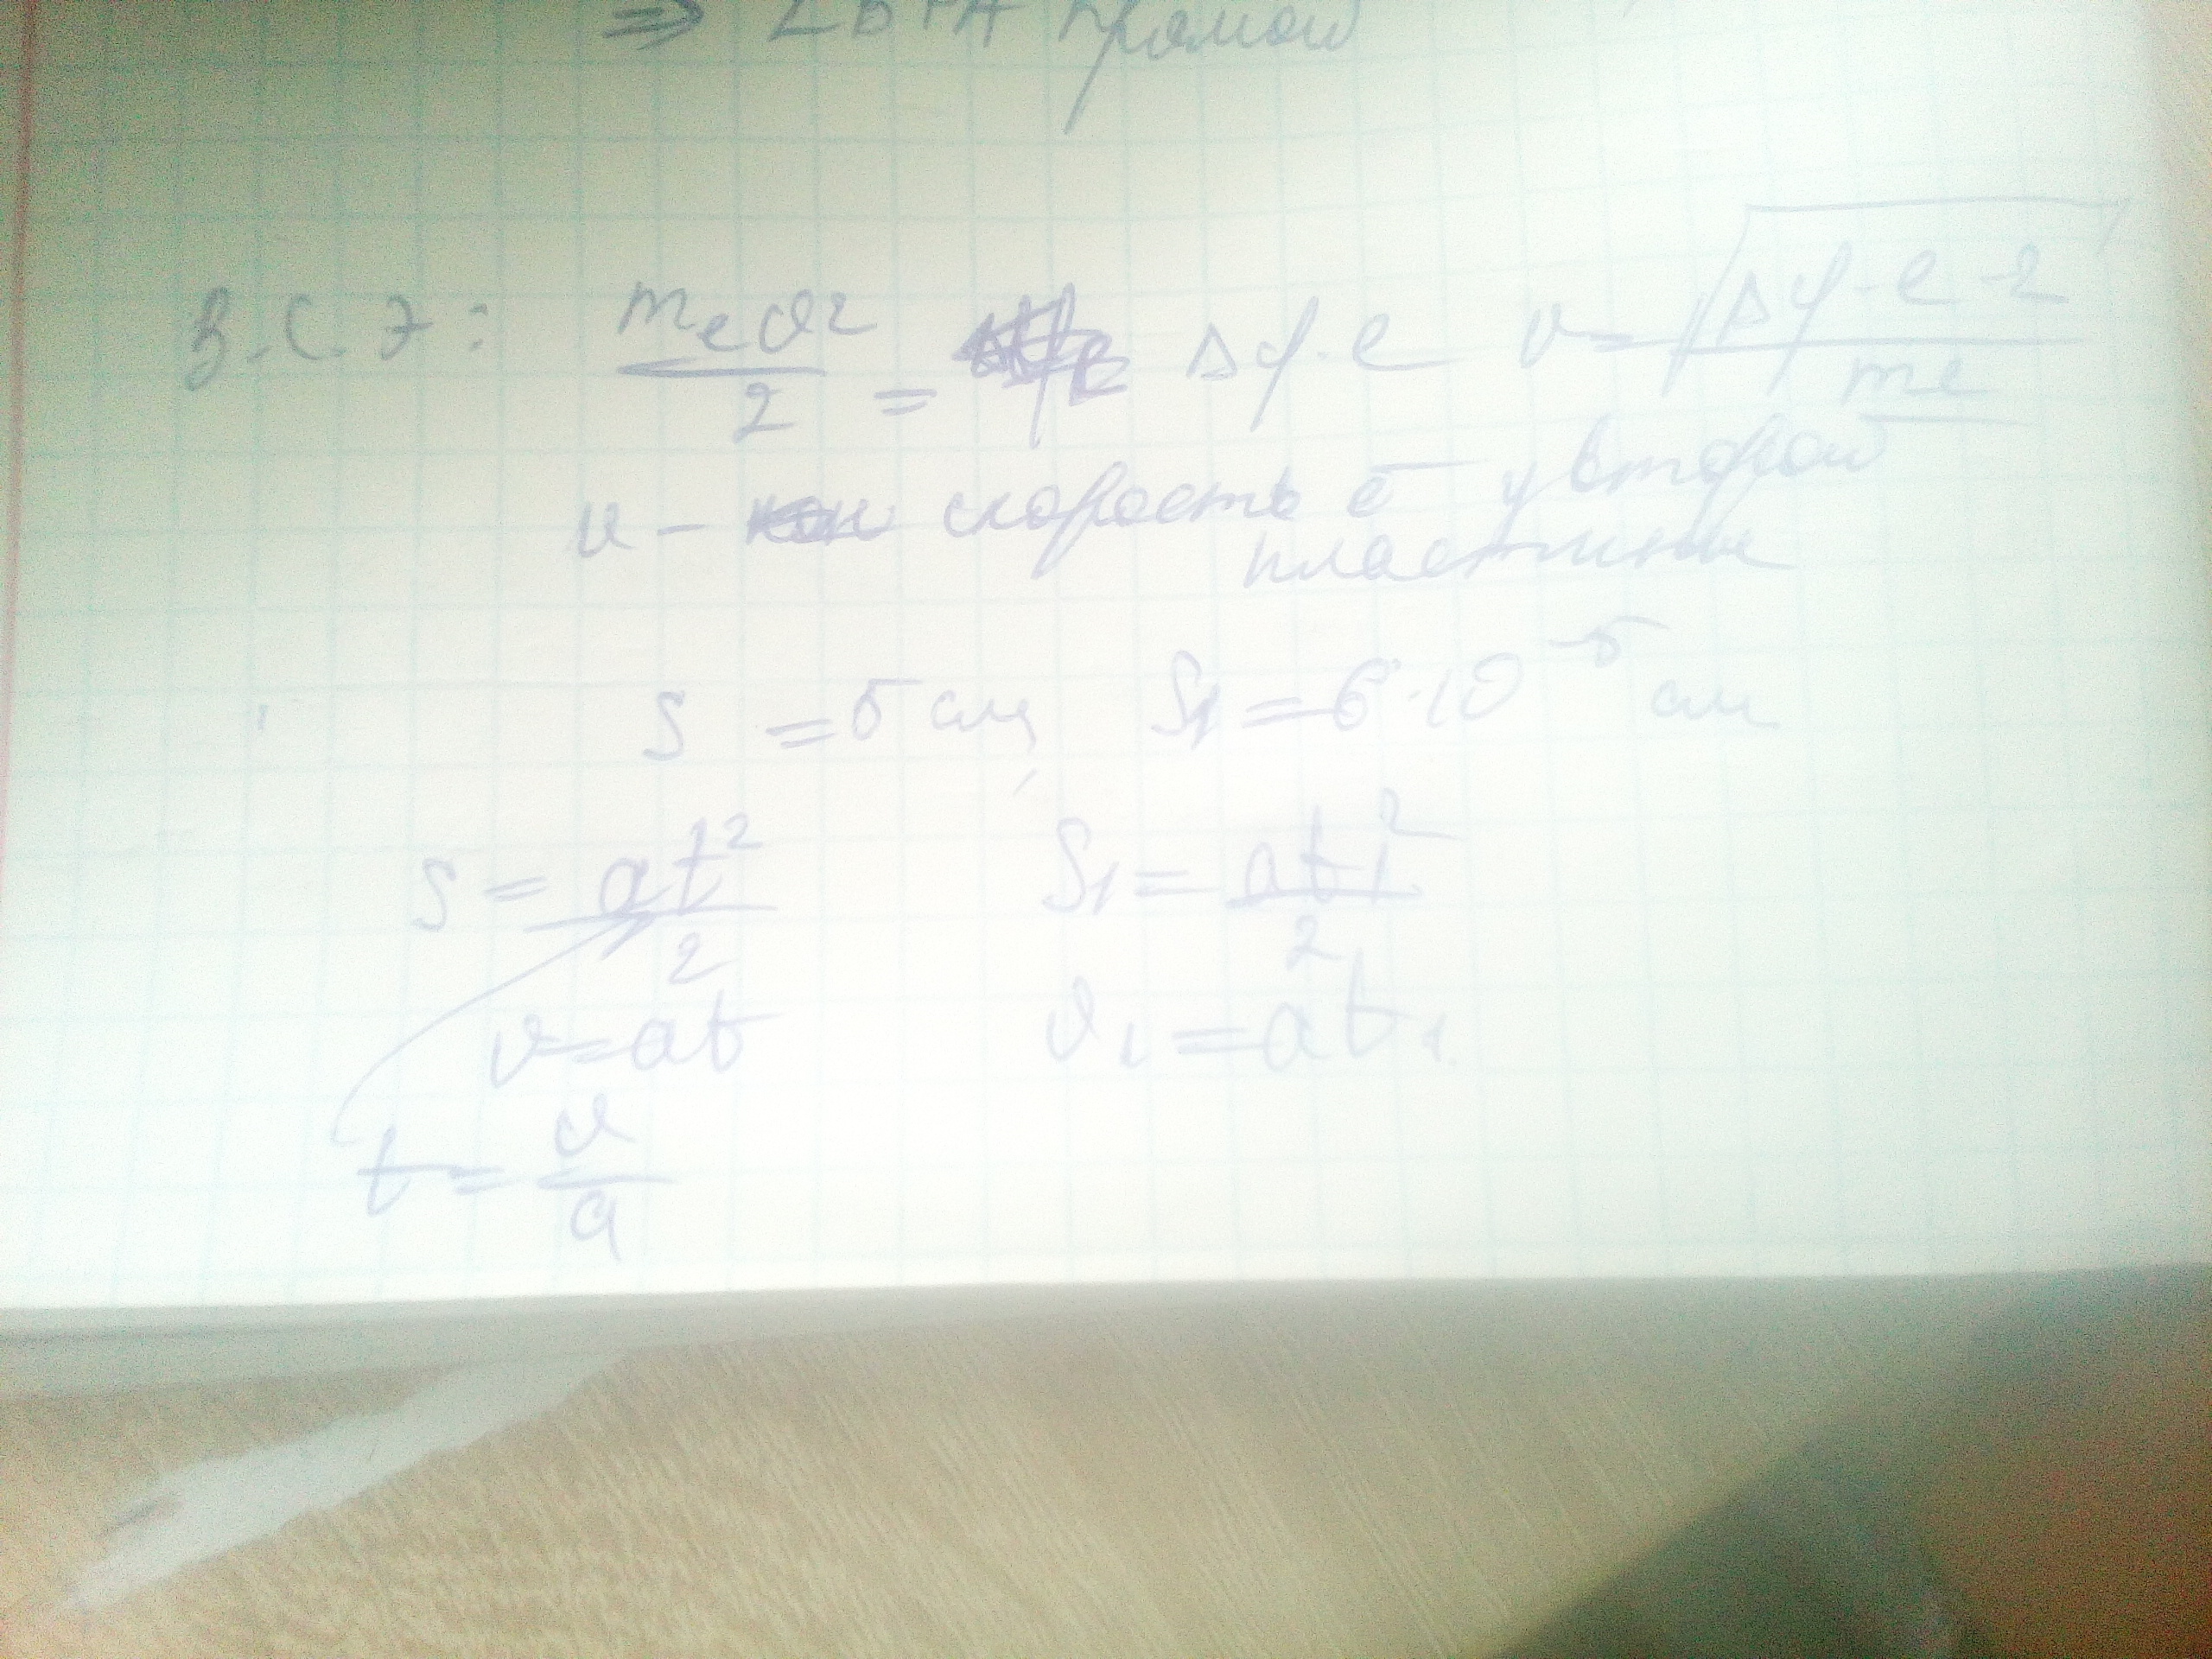 ⇒ ∠BPA прямой
З.С.Э: mₑv²/2 = Δφ·e v = √(Δφ·e·2/mₑ)
v – скорость e⁻ у второй
пластины
S = 5 см, S₁ = 6·10⁻⁵ см
S = at²/2 S₁ = at₁²/2
v = at v₁ = at₁
t = v/a